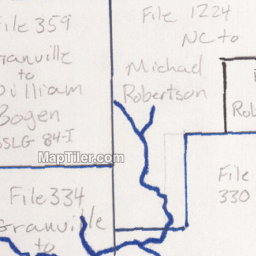 File 359
Granville
to
William
Bogen
SSLG 84-I
File 1224
NC to
Michael
Robertson
MapTiler.com
File 334
Granville
to
Rob
File
330